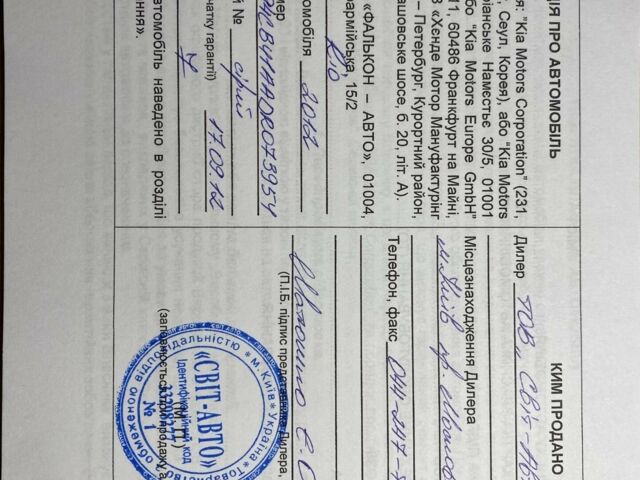 ЦІЯ ПРО АВТОМОБІЛЬ
я: "Kia Motors Corporation" (231,
, Сеул, Корея), або "Kia Motors
ріанське Наместье 30/5, 01001
або "Kia Motors Europe GmbH"
11, 60486 Франкфурт на Майні,
В «Хенде Мотор Мануфактурінг
– Петербург, Курортний район,
ашовське шосе, б. 20, літ. А).
«ФАЛЬКОН – АВТО», 01004,
оармійська, 15/2
Rio
омобіля 2012
мер
ій № сірий
чатку гарантії) 17.09.12
втомобіль наведено в розділі
ння».
КИМ ПРОДАНО
Дилер ТОВ „Світ-Ав
Місцезнаходження Дилера
м. Київ пр.
Телефон, факс 044-247-
(П.І.Б. підпис представника Дилера,
(М.П.)
(заповнюється продажу, а
* м. Київ * Україна * Товариство
обмеженою відповідальністю
«СВІТ-АВТО»
Ідентифікаційний код
№ 1